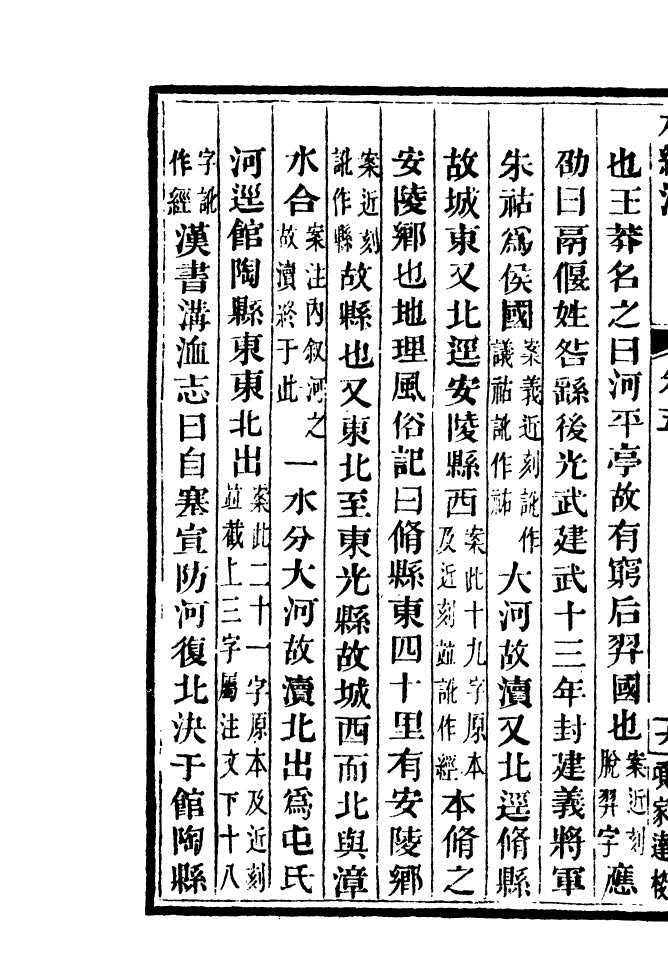 水經注
卷五
項家達校
也王莽名之曰河平亭故有窮后羿國也案近刻脫羿字應
劭曰鬲偃姓咎繇後光武建武十三年封建義將軍
朱祜爲侯國案義近刻訛作議祜訛作祐大河故瀆又北逕脩縣
故城東又北逕安陵縣西案此十九字原本及近刻並訛作經本脩之
安陵鄉也地理風俗記曰脩縣東四十里有安陵鄉
案近刻訛作縣故縣也又東北至東光縣故城西而北與漳
水合案注內叙河之故瀆終于此一水分大河故瀆北出爲屯氏
河逕館陶縣東東北出案此二十一字原本及近刻並截上三字屬注文下十八
字訛作經漢書溝洫志曰自塞宣防河復北決于館陶縣